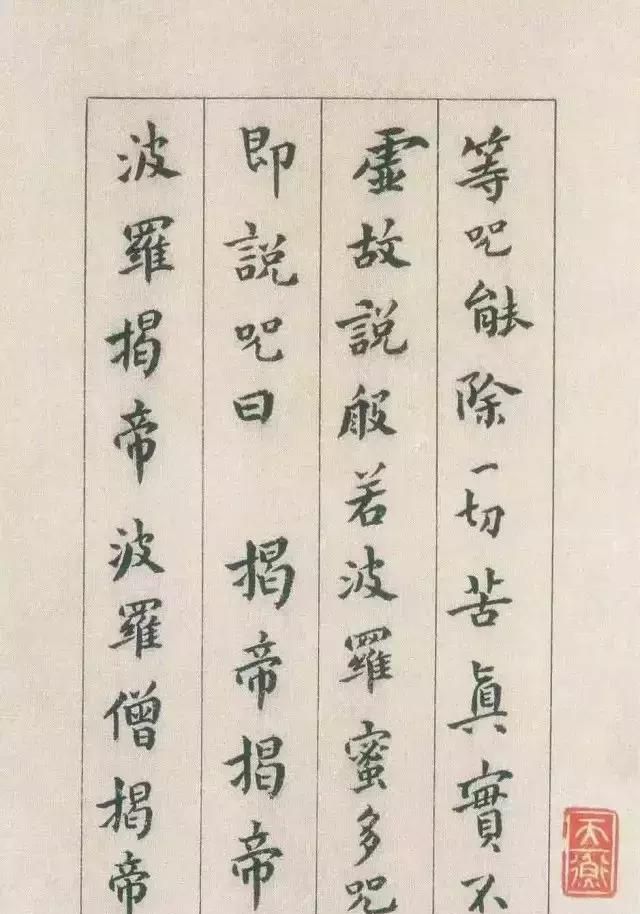 等咒能除一切苦真實不
虛故說般若波羅蜜多咒
即說咒曰　揭帝揭帝
波羅揭帝波羅僧揭帝